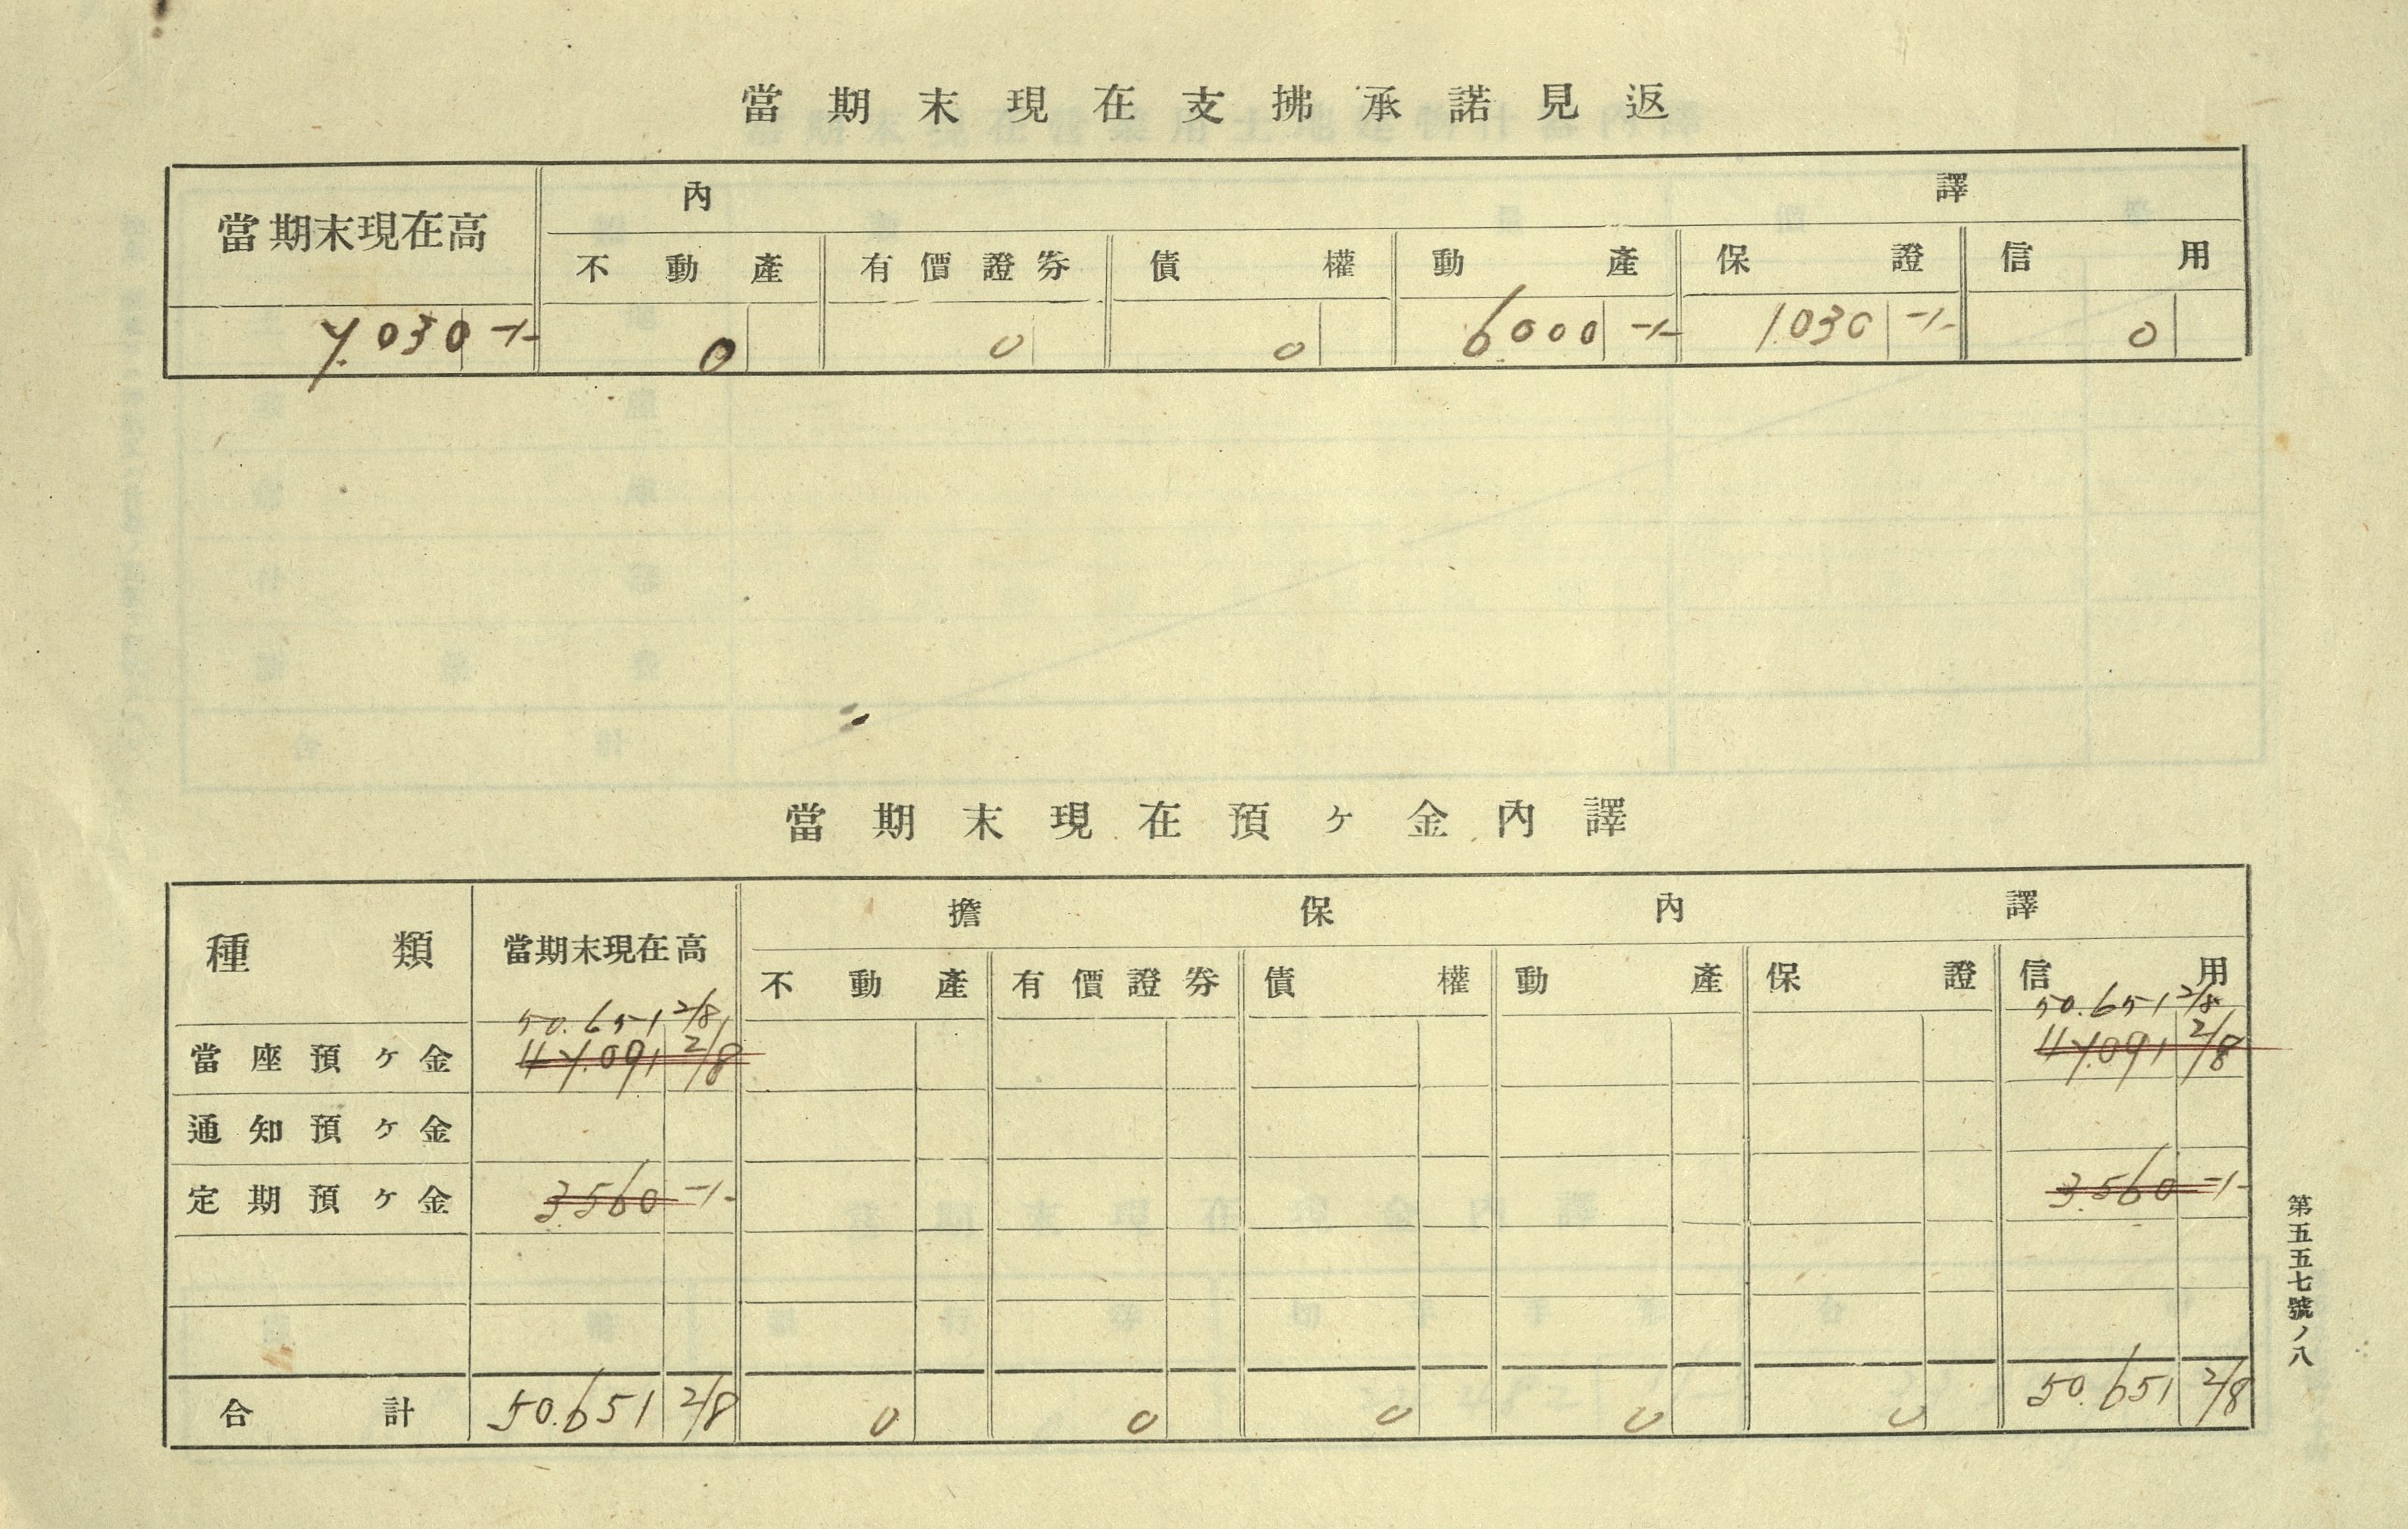 當期末現在支拂承諾見返
當期末現在高 內譯
不動產 有價證券 債權 動產 保證 信用
7.030 -/- 0 0 0 6000 -/- 1030 -/- 0
當期末現在預ヶ金內譯
種類 當期末現在高 擔保內譯
不動產 有價證券 債權 動產 保證 信用
50.651 2/8 50.651 2/8
當座預ヶ金 47.091 2/8 47.091 2/8
通知預ヶ金
定期預ヶ金 3560 -/- 3.560 -/-
合計 50.651 2/8 0 0 0 0 0 50.651 2/8
第五五七號ノ八